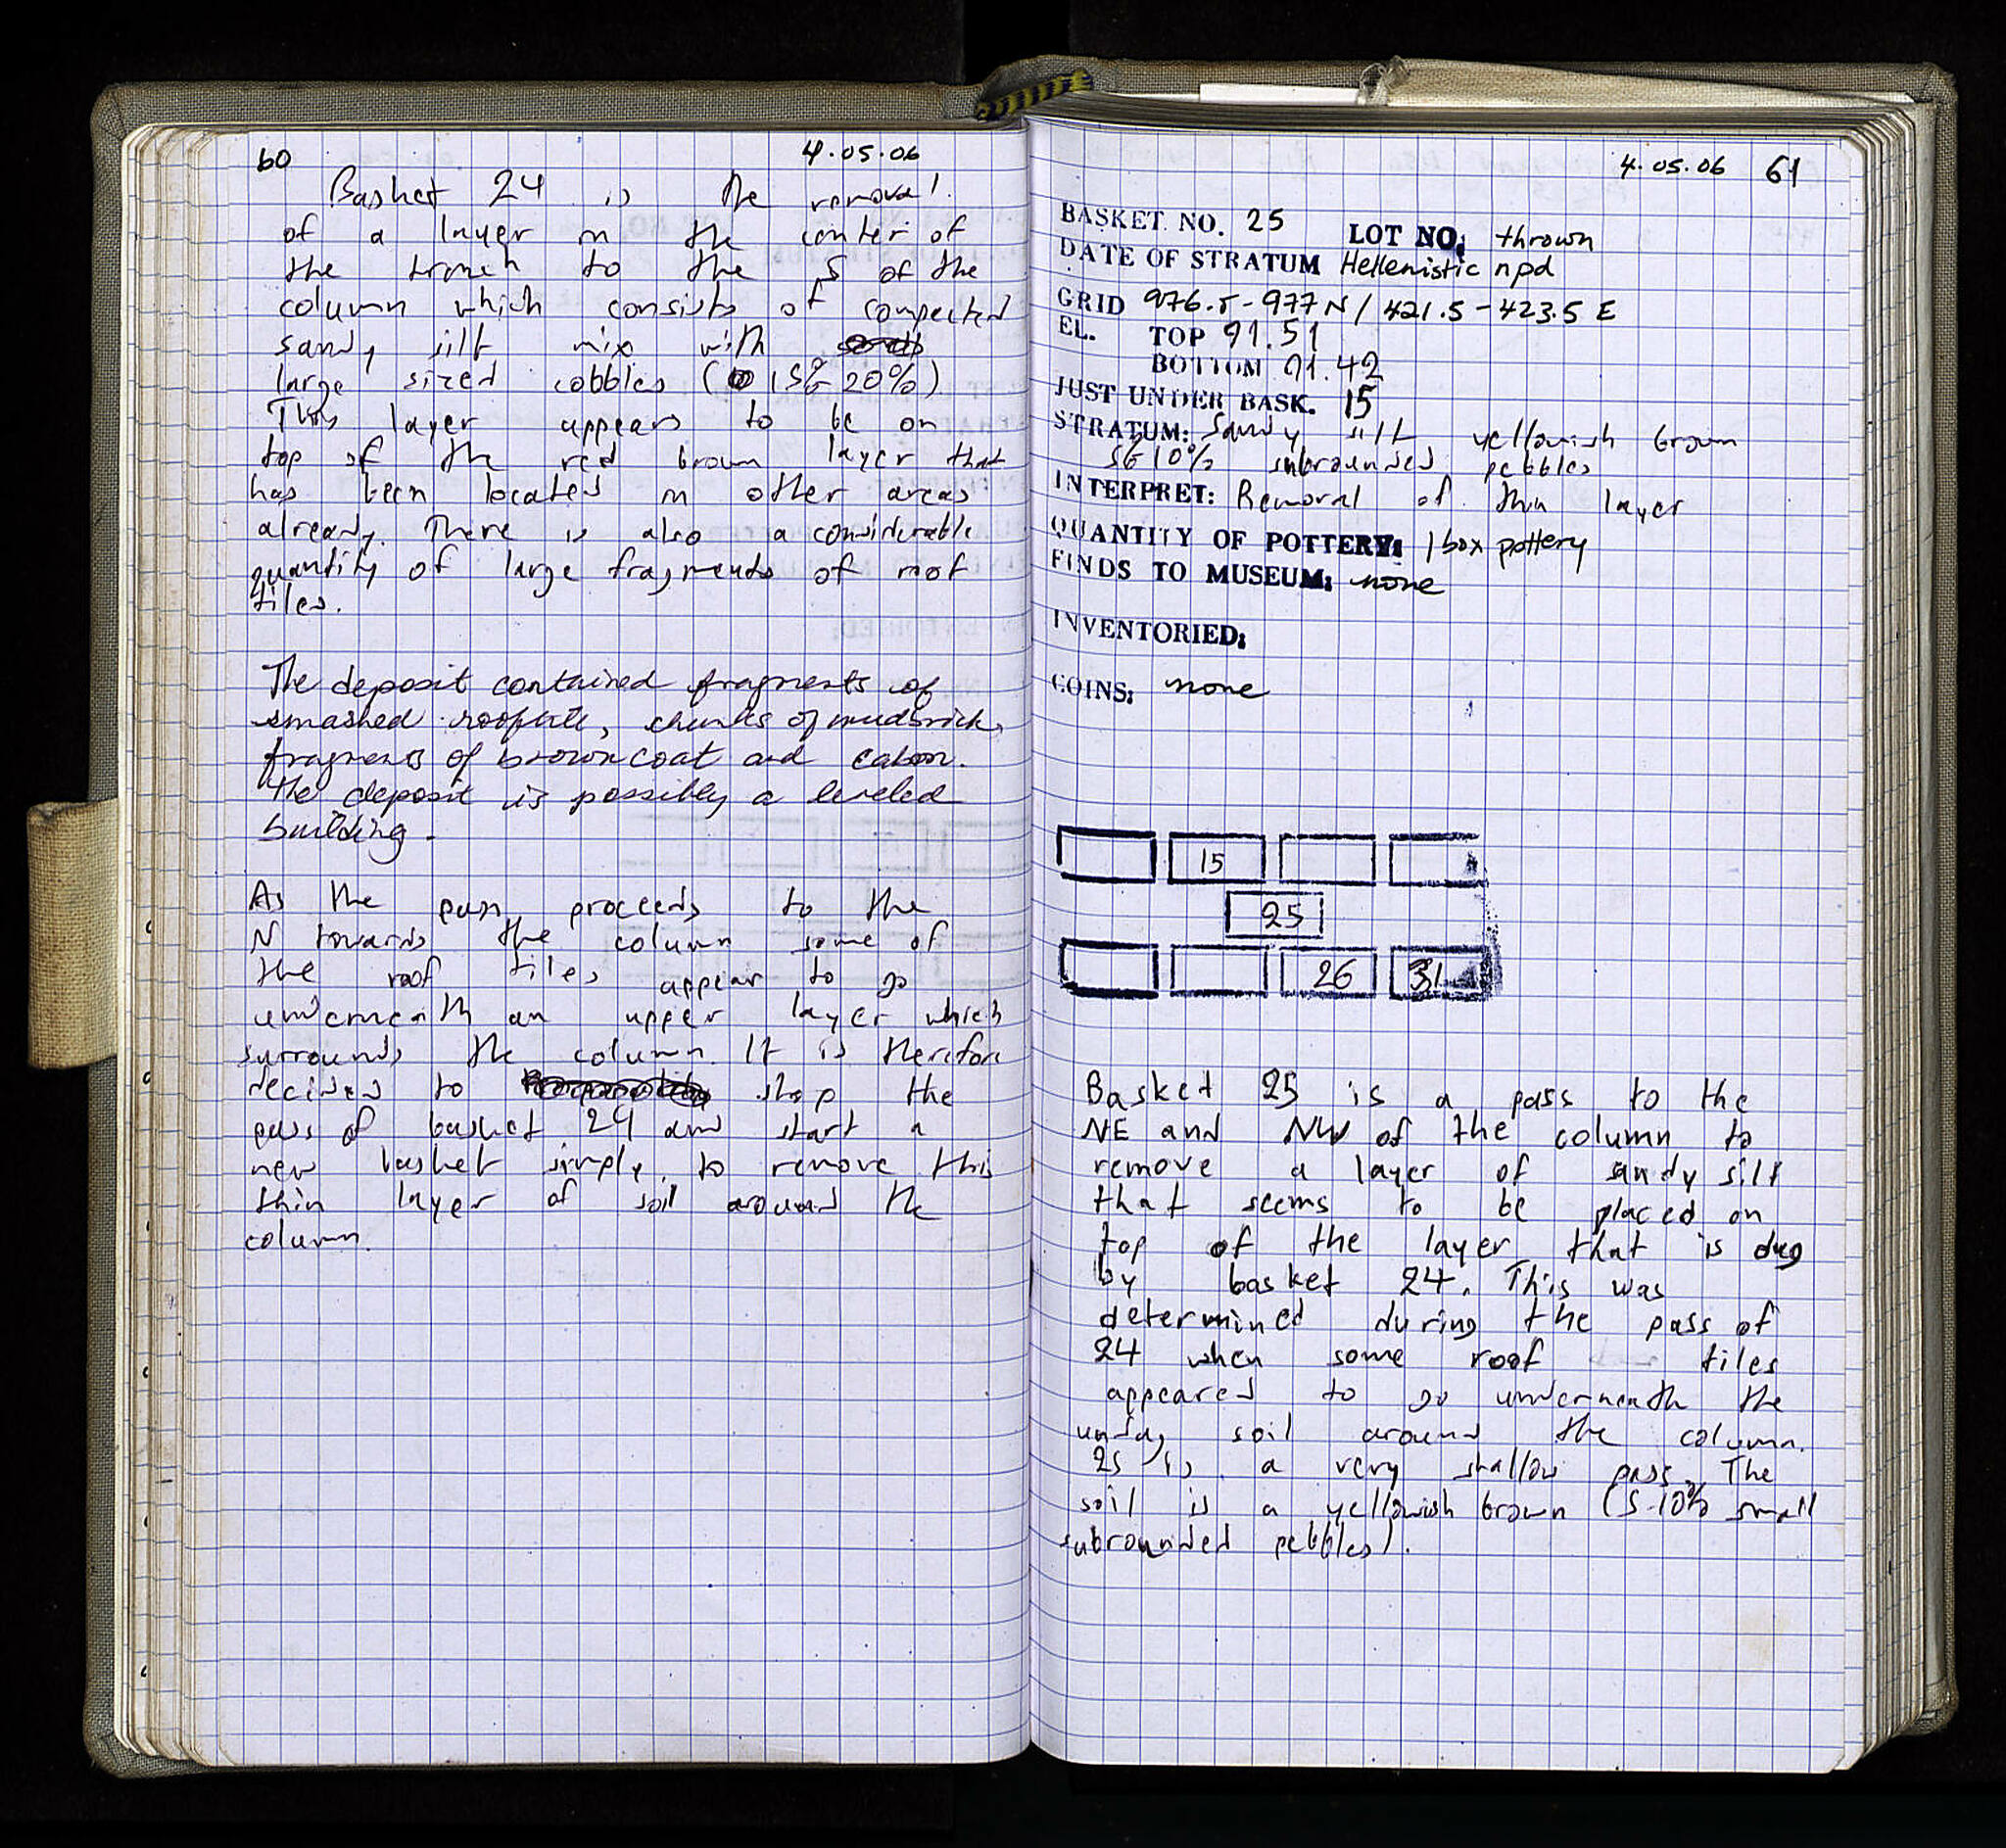 60
4.05.06
Basket 24 is the removal
of a layer in the center of
the trench to the S of the
column which consists of compected
sandy silt mix with
large sized cobbles ( 15-20%)
This layer appears to be on
top of the red brown layer that
has been located in other areas
already. There is also a considerable
quantity of large fragments of roof
tiles.
The deposit contained fragments of
smashed rooftile, chunks of mudbrick,
fragments of browncoat and cabon.
the deposit is possibly a leveled
building.
As the pass proceeds to the
N towards the column some of
the roof tiles appear to go
underneath an upper layer which
surrounds the column. It is therefore
decided to stop the
pass of basket 24 and start a
new basket simply to remove this
thin layer of soil around the
column.
4.05.06 61
BASKET NO. 25 LOT NO: thrown
DATE OF STRATUM Hellenistic npd
GRID 976.5-977 N / 421.5-423.5 E
EL. TOP 91.51
BOTTOM 91.42
JUST UNDER BASK. 15
STRATUM: Sandy silt, yellowish brown
10% subrounded pebbles
INTERPRET: Removal of thin layer
QUANTITY OF POTTERY: 1 box pottery
FINDS TO MUSEUM: none
INVENTORIED:
COINS: none
15
25
26 31
Basket 25 is a pass to the
NE and NW of the column to
remove a layer of sandy silt
that seems to be placed on
top of the layer that is dug
by basket 24. This was
determined during the pass of
24 when some roof tiles
appeared to go underneath the
soil around the column.
25 is a very shallow pass. The
soil is a yellowish brown (5-10% small
subrounded pebbles).